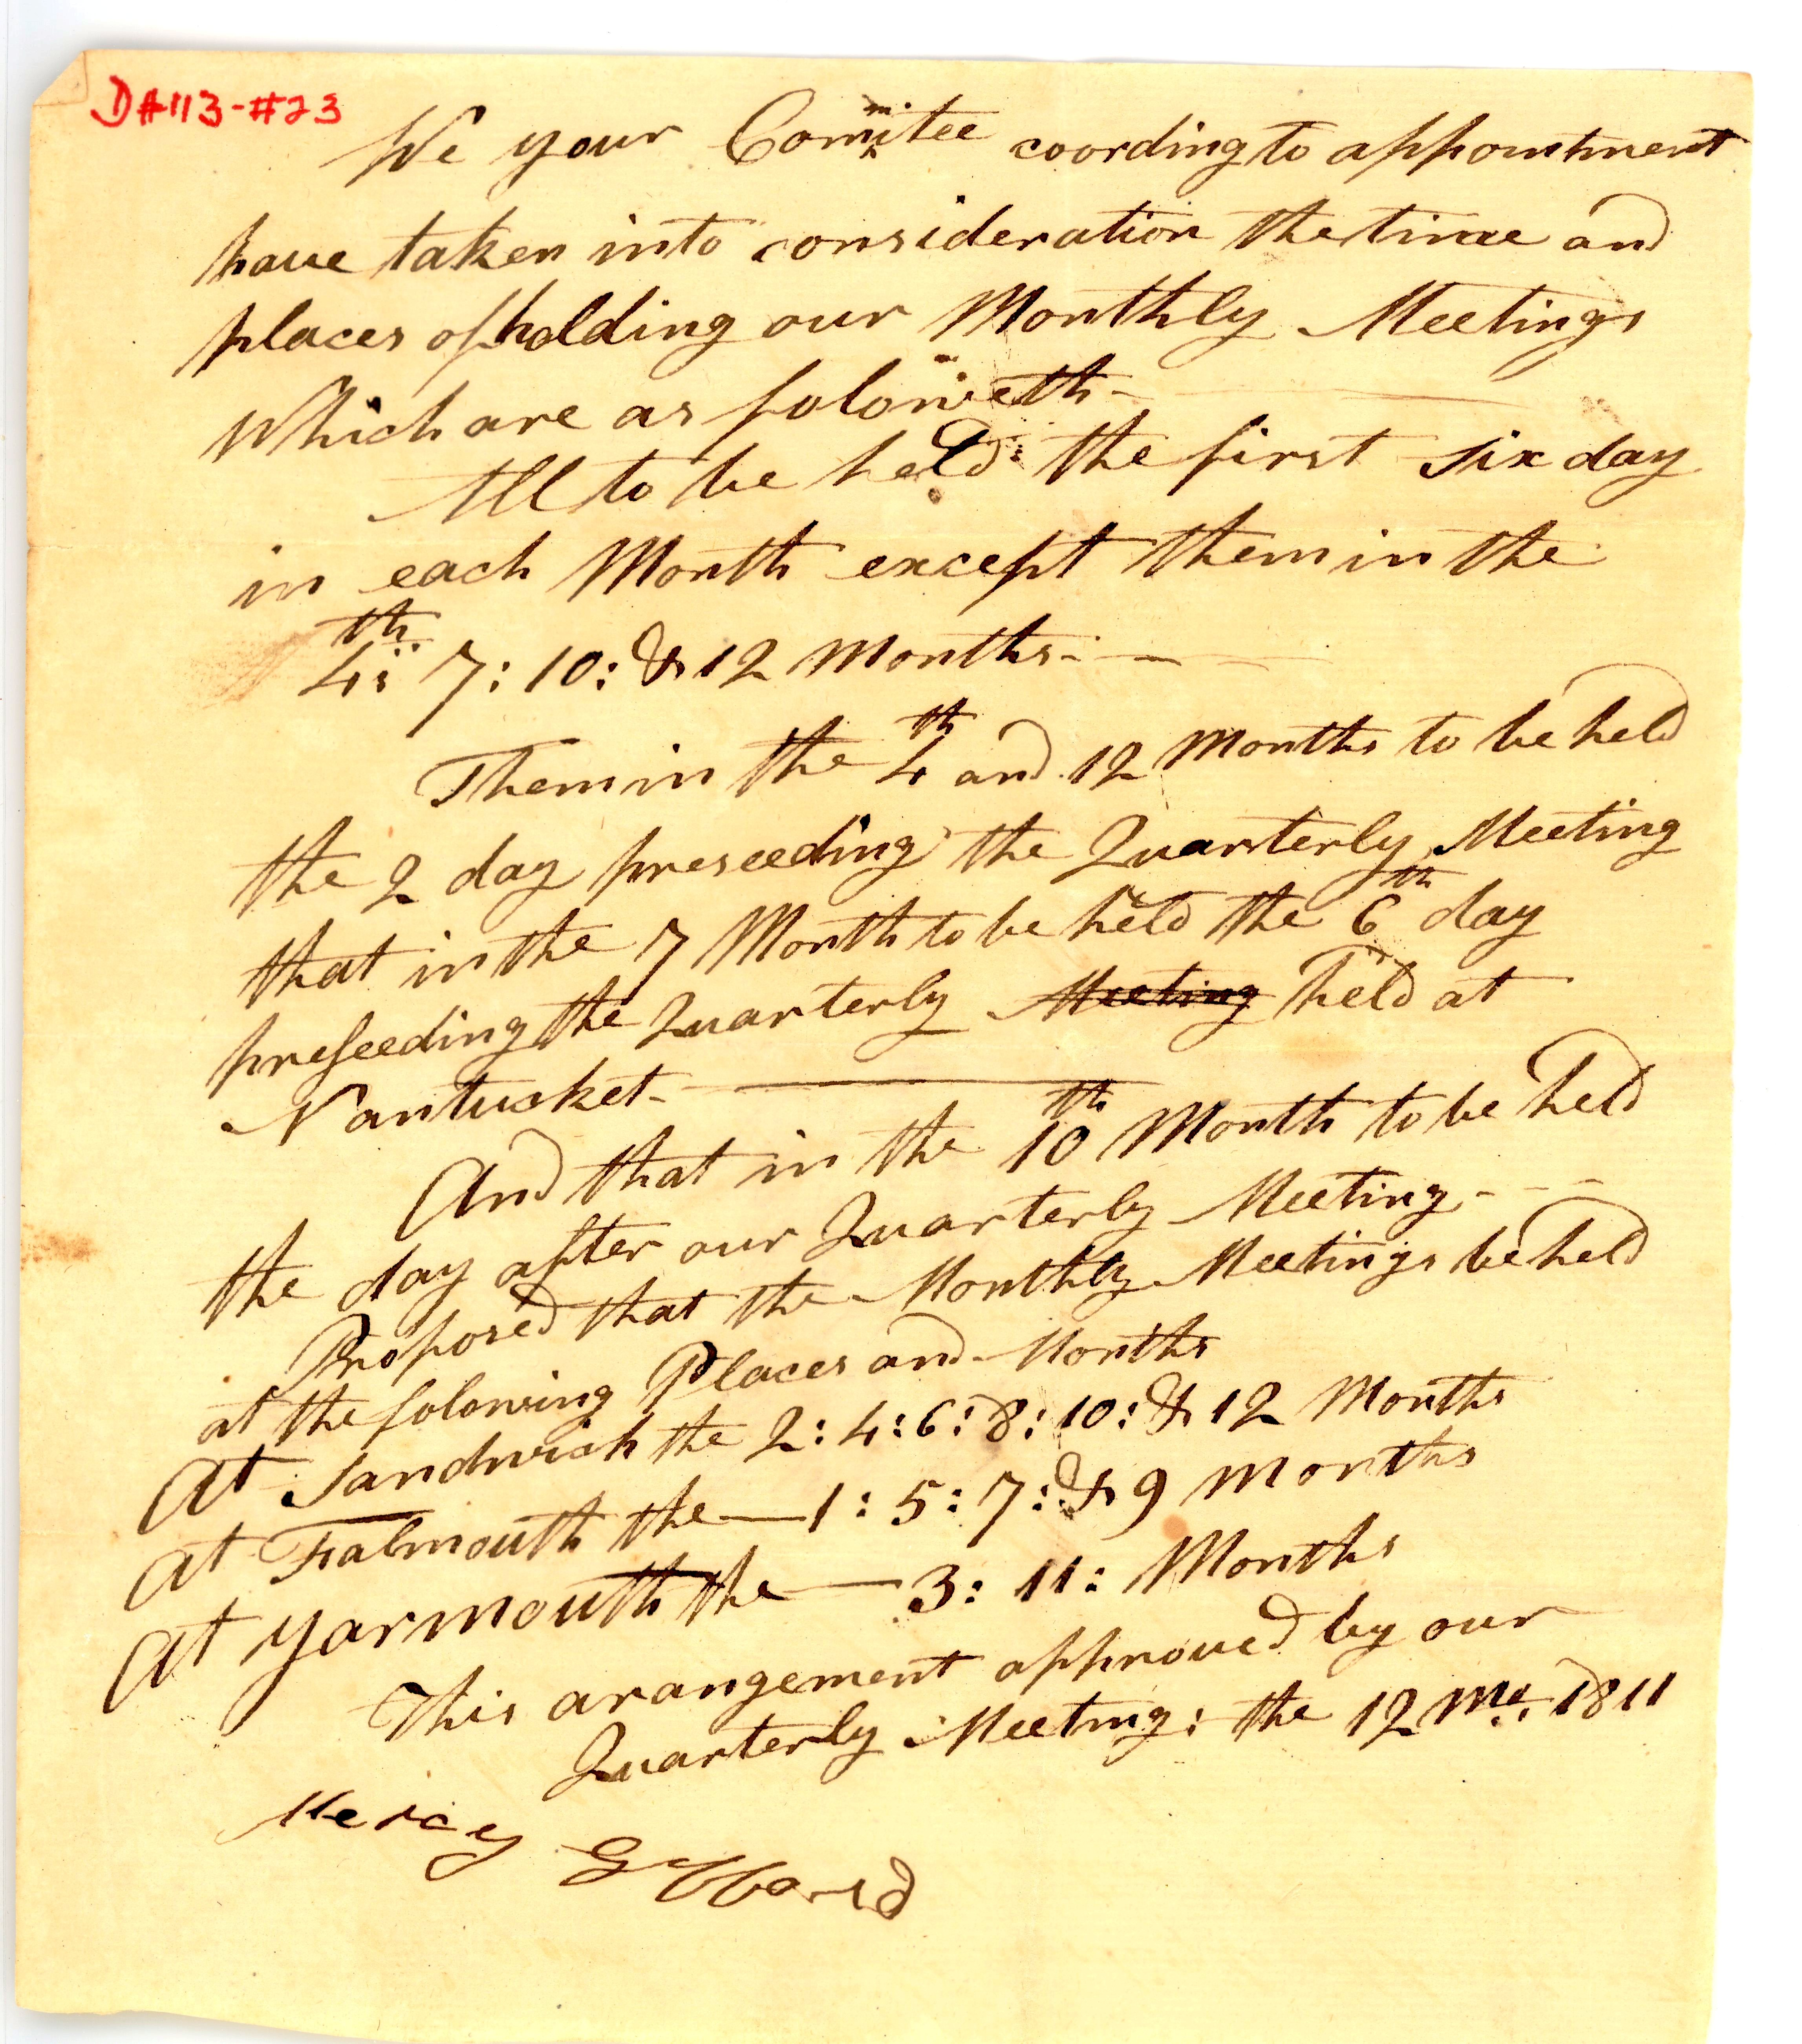 DA113-#23
We your Committee coording to appointment
have taken into consideration the time and
places of holding our Monthly Meetings
Which are as foloweth-
All to be held the first six day
in each Month except them in the
4th: 7: 10: & 12 Months.
Them in the 4th and 12 Months to be held
the 2 day preseeding the Quarterly Meeting
that in the 7 Month to be held the 6th day
preseeding the Quarterly Meeting held at
Nantucket-
And that in the 10th Month to be held
the day after our Quarterly Meeting.
Proposed that the Monthly Meetings be held
at the folowing Places and Months
At Sandwich the 2: 4: 6: 8: 10: & 12 Months
At Falmouth the — 1: 5: 7: & 9 Months
At Yarmouth the — 3: 11: Months
This arangement approved by our
Quarterly Meeting: the 12 Mo. 1811
Mercy Giffard